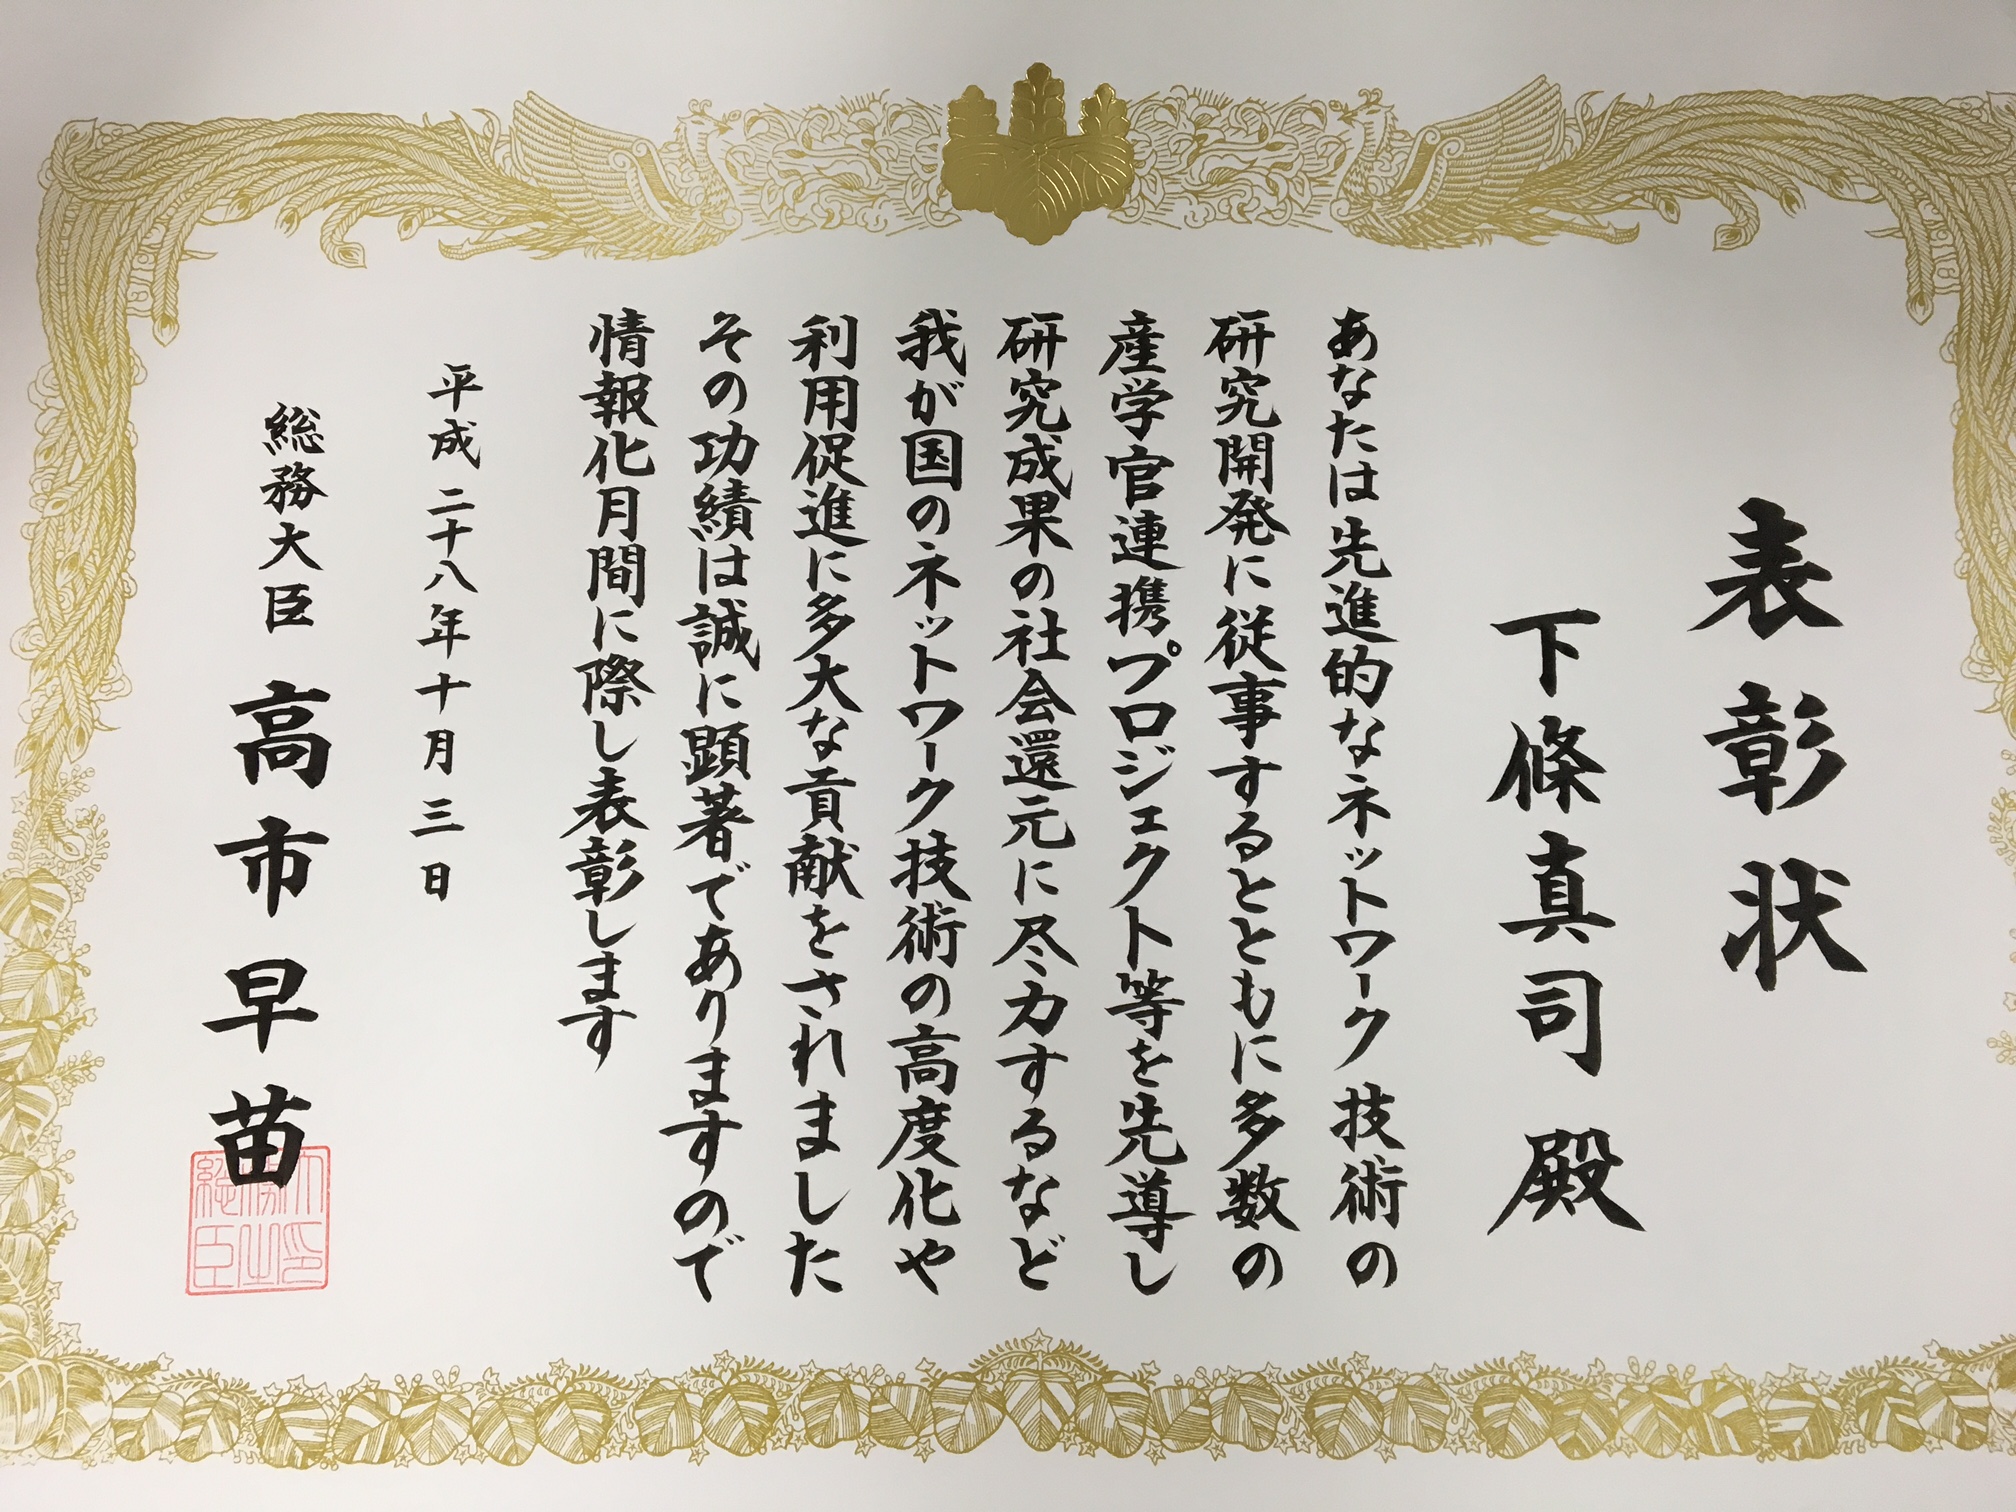 表彰状
下條真司 殿
あなたは先進的なネットワーク技術の
研究開発に従事するとともに多数の
産学官連携プロジェクト等を先導し
研究成果の社会還元に尽力するなど
我が国のネットワーク技術の高度化や
利用促進に多大な貢献をされました
その功績は誠に顕著でありますので
情報化月間に際し表彰します
平成二十八年十月三日
総務大臣 高市早苗
総務大臣之印